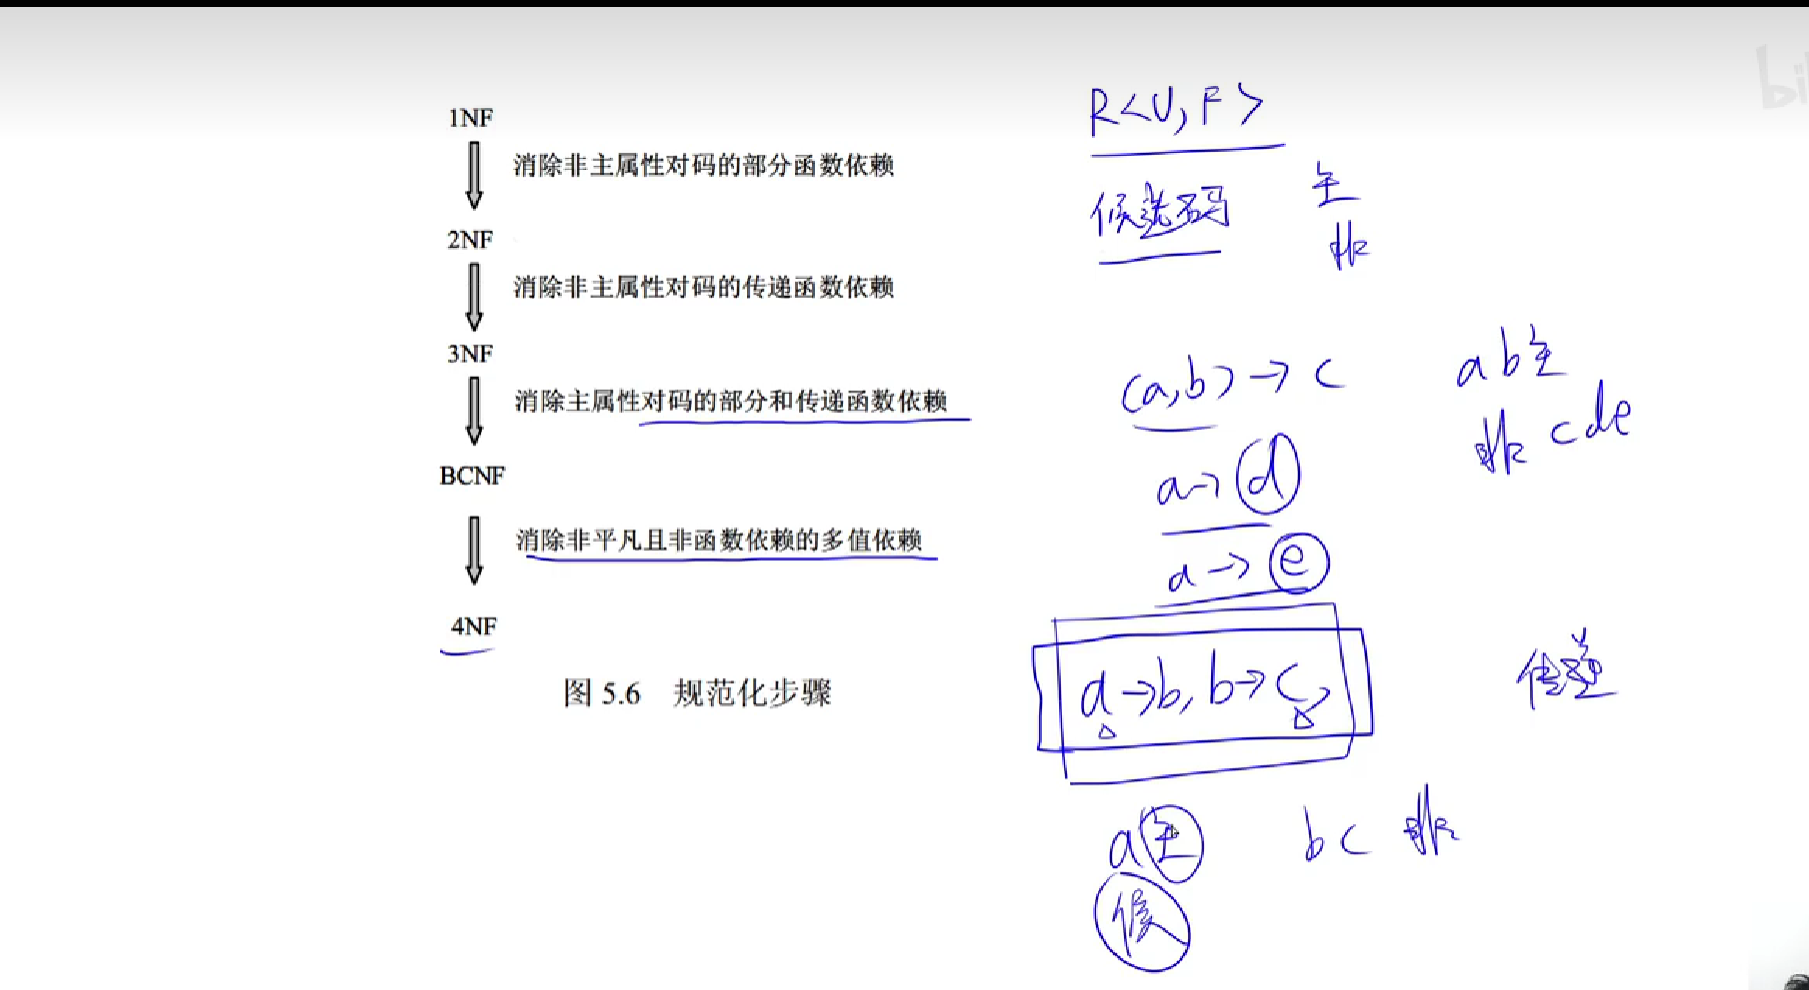 1NF
消除非主属性对码的部分函数依赖
2NF
消除非主属性对码的传递函数依赖
3NF
消除主属性对码的部分和传递函数依赖
BCNF
消除非平凡且非函数依赖的多值依赖
4NF
图 5.6 规范化步骤
R<U, F>
候选码
主
非
(a,b)→c
ab主
非cde
a→d
a→e
a→b, b→c,
传递
a主
bc 非
候
bi